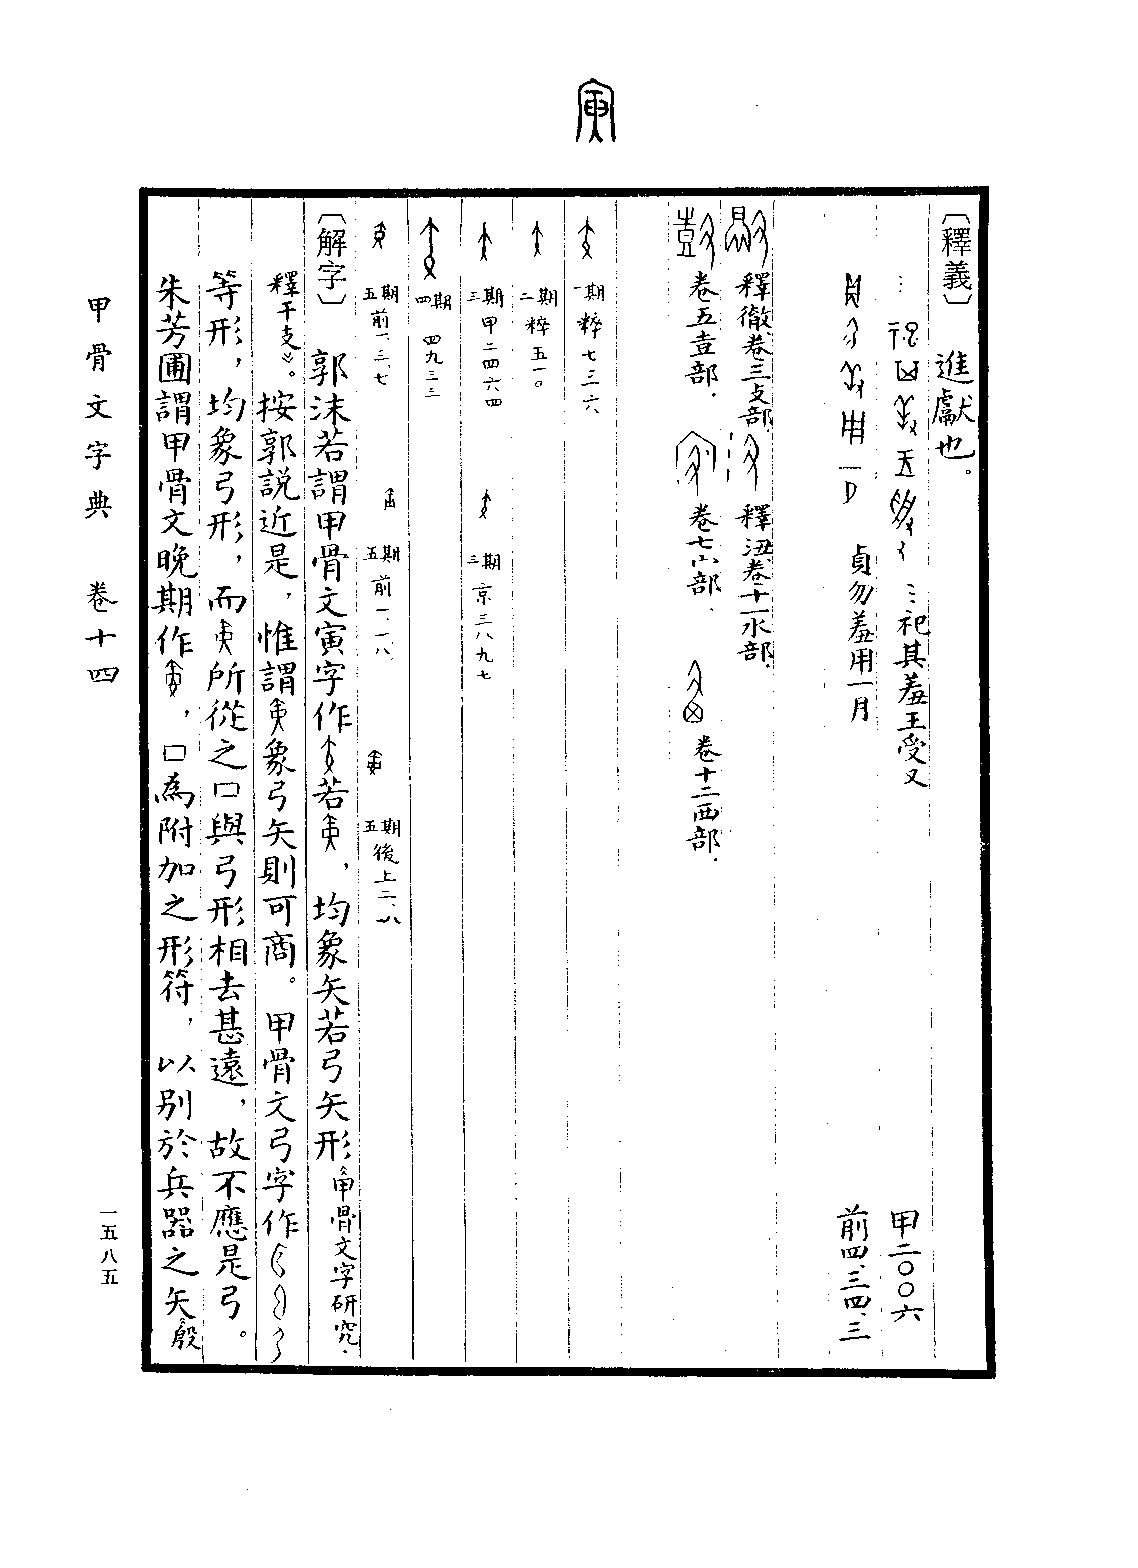 寅
〔釋義〕 進獻也。
…祀其羞王受又 甲二〇〇六
貞勿羞用一月 前四、三四、三
釋徹卷三攴部. 釋沑卷十一水部.
卷五壴部. 卷七宀部. 卷十二西部.
一期 粹七三六
二期 粹五一〇
三期 甲二四六四 三期 京三八九七
四期 四九三三
五期 前一、三、七 五期 前一、一、八 五期 後上二、一八
〔解字〕 郭沫若謂甲骨文寅字作若,均象矢若弓矢形《甲骨文字研究.
釋干支》。按郭説近是,惟謂象弓矢則可商。甲骨文弓字作
等形,均象弓形,而所從之口與弓形相去甚遠,故不應是弓。
朱芳圃謂甲骨文晚期作,口為附加之形符,以別於兵器之矢《殷
甲骨文字典 卷十四
一五八五